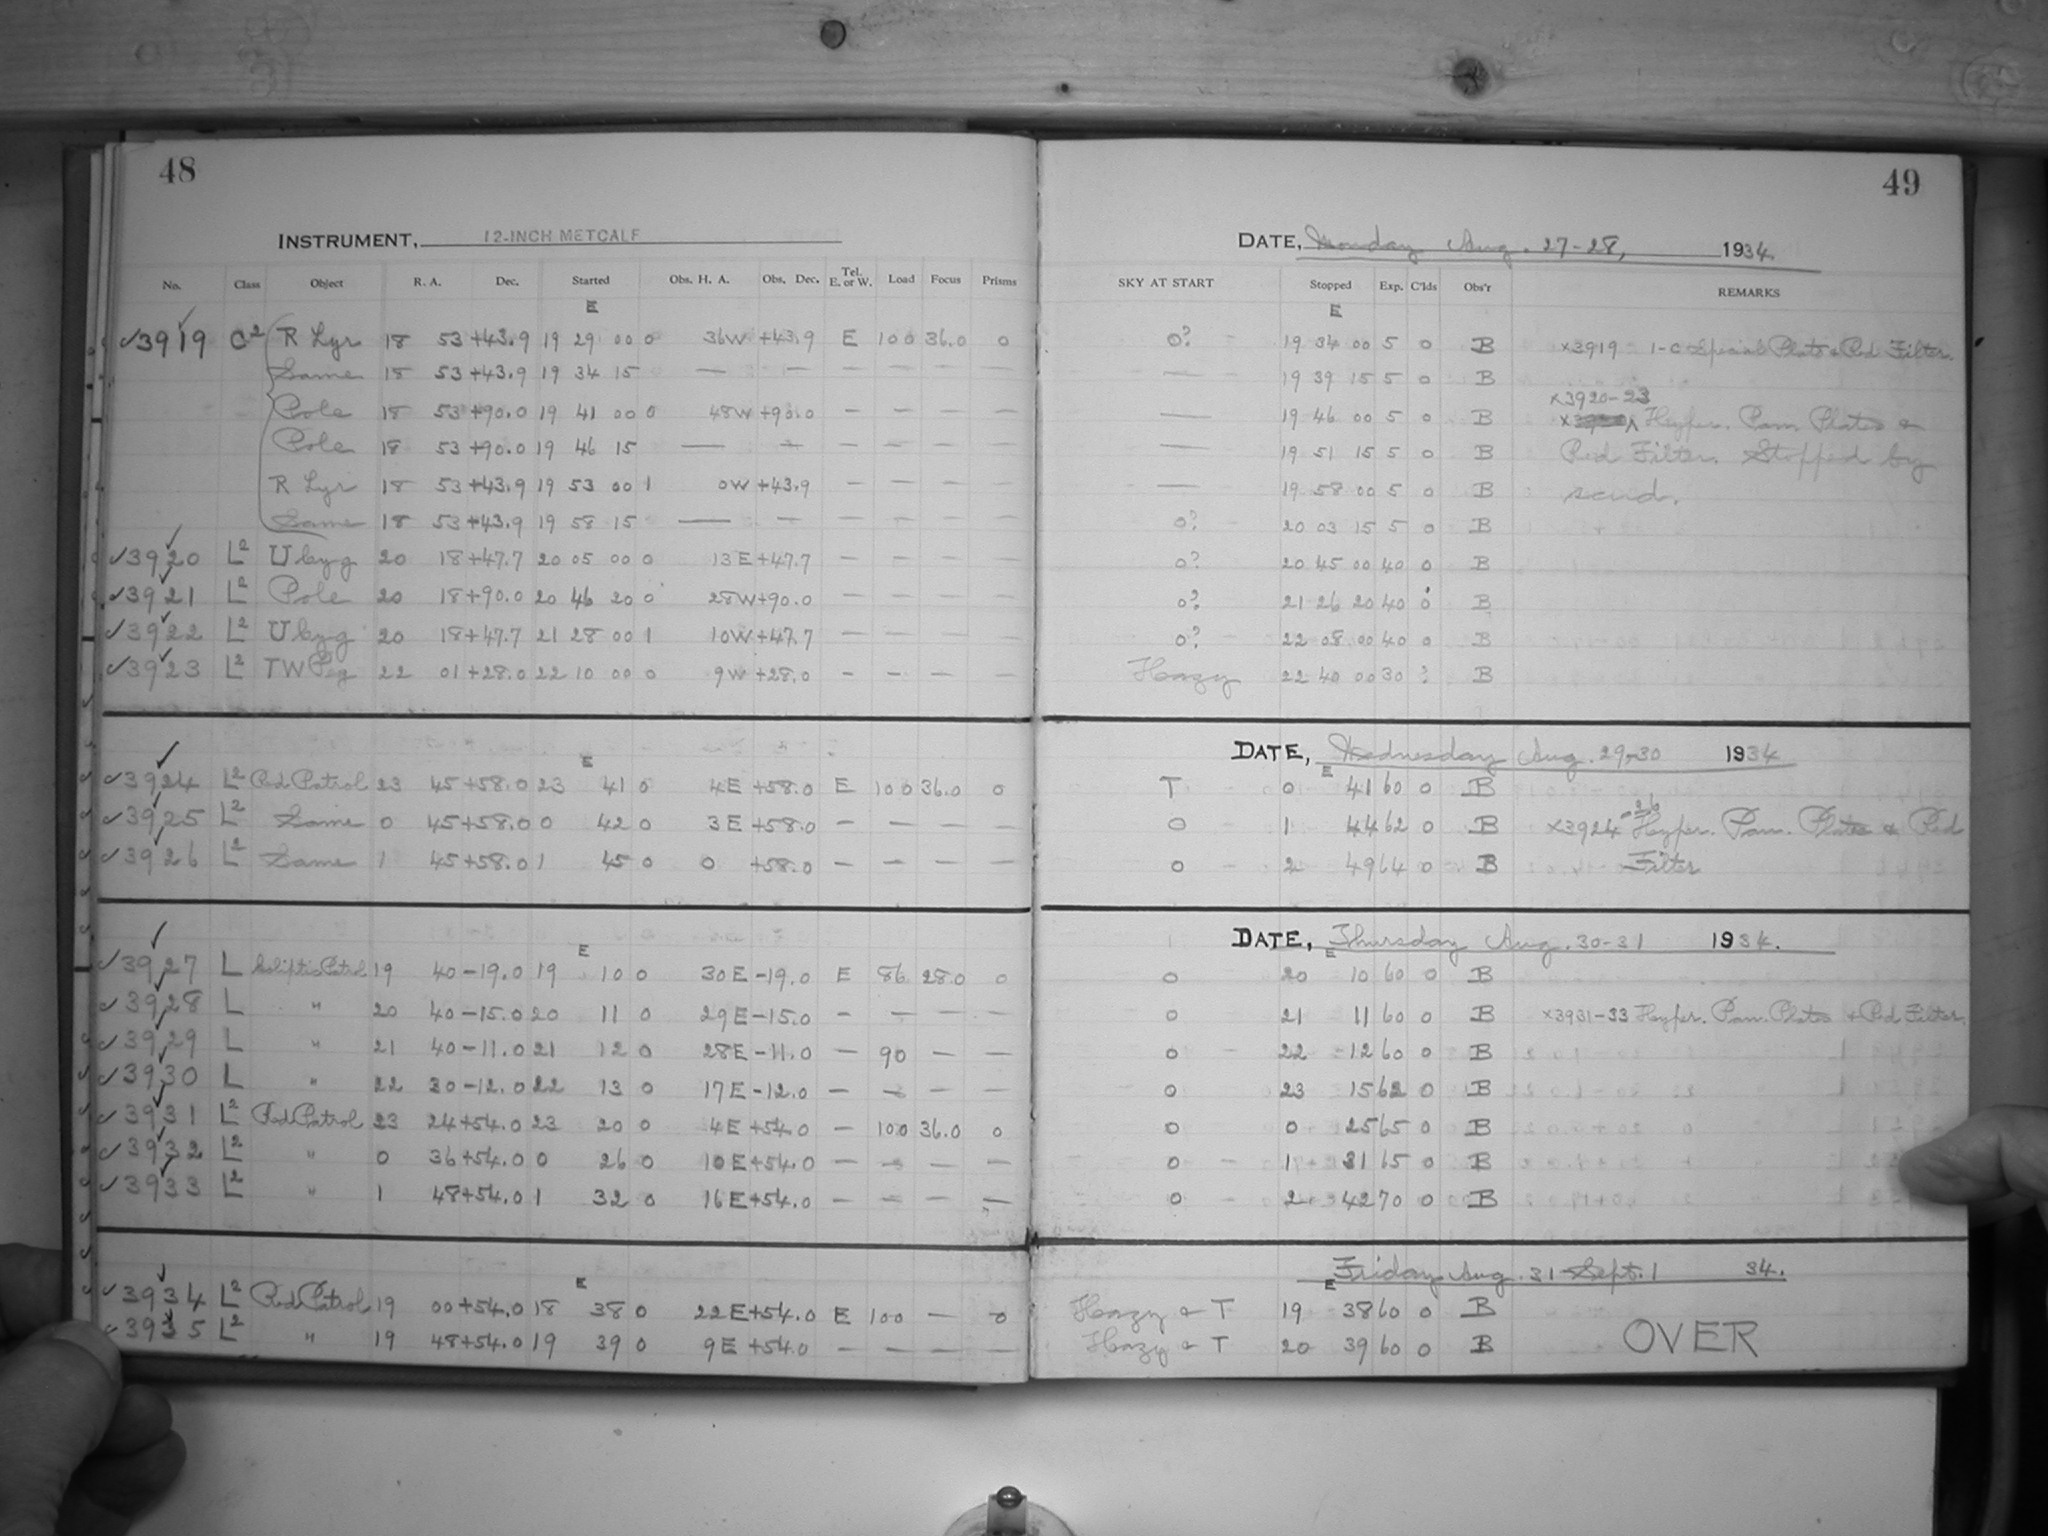 48
INSTRUMENT, 12-INCH METCALF
No. Class Object R. A. Dec. Started Obs. H. A. Obs. Dec. Tel. E. or W. Load Focus Prisms
E
3919 C2 R Lyr 18 53 +43.9 19 29 00 0 36W +43.9 E 100 36.0 0
Same 18 53 +43.9 19 34 15 — — — — — —
Pole 18 53 +90.0 19 41 00 0 48W +90.0 — — — —
Pole 18 53 +90.0 19 46 15 — — — — — —
R Lyr 18 53 +43.9 19 53 00 1 0W +43.9 — — — —
Same 18 53 +43.9 19 58 15 — — — — — —
3920 L2 U Cyg 20 18 +47.7 20 05 00 0 13E +47.7 — — — —
3921 L2 Pole 20 18 +90.0 20 46 20 0 28W +90.0 — — — —
3922 L2 U Cyg 20 18 +47.7 21 28 00 1 10W +47.7 — — — —
3923 L2 TW Peg 22 01 +28.0 22 10 00 0 9W +28.0 — — — —
E
3924 L2 Red Patrol 23 45 +58.0 23 41 0 4E +58.0 E 100 36.0 0
3925 L2 Same 0 45 +58.0 0 42 0 3E +58.0 — — — —
3926 L2 Same 1 45 +58.0 1 45 0 0 +58.0 — — — —
E
3927 L Ecliptic Patrol 19 40 -19.0 19 10 0 30E -19.0 E 86 28.0 0
3928 L " 20 40 -15.0 20 11 0 29E -15.0 — — — —
3929 L " 21 40 -11.0 21 12 0 28E -11.0 — 90 — —
3930 L " 22 30 -12.0 22 13 0 17E -12.0 — — — —
3931 L2 Red Patrol 23 24 +54.0 23 20 0 4E +54.0 — 100 36.0 0
3932 L2 " 0 36 +54.0 0 26 0 10E +54.0 — — — —
3933 L2 " 1 48 +54.0 1 32 0 16E +54.0 — — — —
E
3934 L2 Red Patrol 19 00 +54.0 18 38 0 22E +54.0 E 100 — 0
3935 L2 " 19 48 +54.0 19 39 0 9E +54.0 — — — —
49
DATE, Monday Aug. 27-28, 1934.
SKY AT START Stopped Exp. C'lds Obs'r REMARKS
E
0? 19 34 00 5 0 B x3919 1-C Special Plate & Red Filter.
— 19 39 15 5 0 B
x3920-23
— 19 46 00 5 0 B Hyper. Pan Plates &
— 19 51 15 5 0 B Red Filter. Stopped by
— 19 58 00 5 0 B scud.
0? 20 03 15 5 0 B
0? 20 45 00 40 0 B
0? 21 26 20 40 0 B
0? 22 08 00 40 0 B
Hazy 22 40 00 30 ? B
DATE, Wednesday Aug. 29-30 1934
E
T 0 41 60 0 B
0 1 44 62 0 B x3924-26 Hyper. Pan. Plates & Red
0 2 49 64 0 B Filter
DATE, Thursday Aug. 30-31 1934.
E
0 20 10 60 0 B
0 21 11 60 0 B x3931-33 Hyper. Pan. Plates & Red Filter.
0 22 12 60 0 B
0 23 15 62 0 B
0 0 25 65 0 B
0 1 31 65 0 B
0 2 42 70 0 B
Friday Aug. 31-Sept. 1 34.
E
Hazy & T 19 38 60 0 B
Hazy & T 20 39 60 0 B
OVER